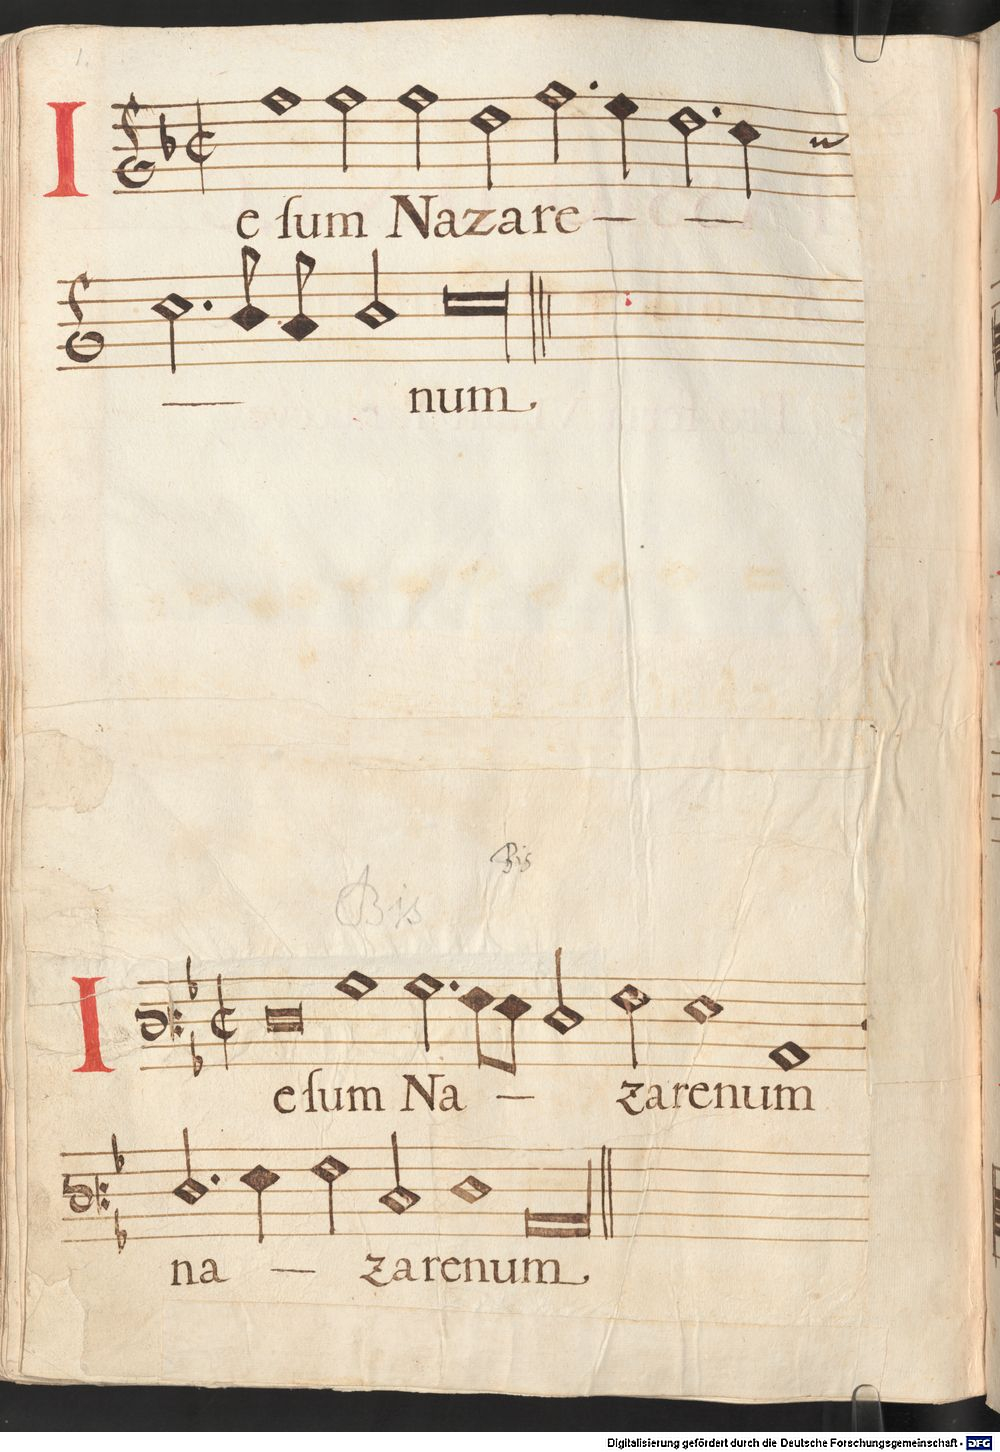 1.
I
e ſum Nazare — —
— num
Bis
Bis
I
eſum Na — zarenum
na — zarenum
Digitalisierung gefördert durch die Deutsche Forschungsgemeinschaft - DFG